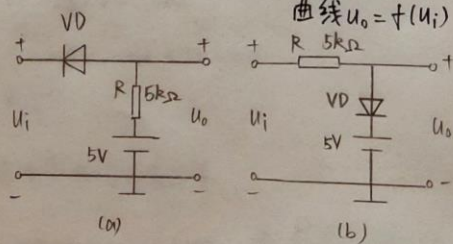 曲线 u₀ = f(uᵢ)
VD
+ +
R 5kΩ
Uᵢ U₀
5V
- -
(a)
R 5kΩ
+ +
VD
Uᵢ U₀
5V
- -
(b)